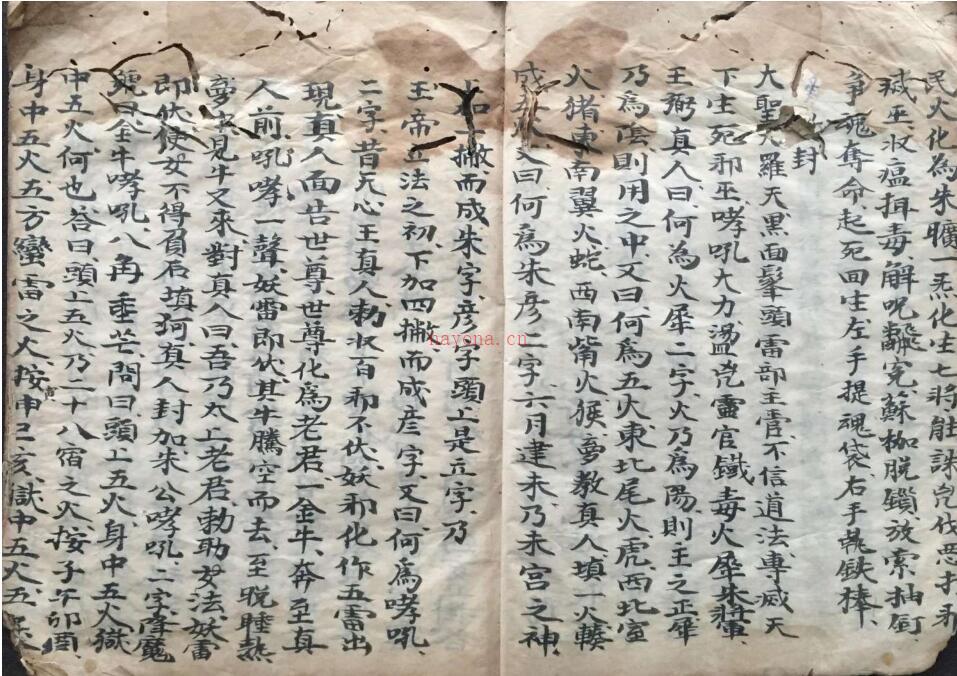 民火化為朱曠一炁化生七將能誅兇伐惡打邪
滅巫収瘟揖毒、解呪離冤、蘇枷脫鎖、放索抽釘
爭魂奪命起死回生左手提魂袋、右手執鉄棒、
封
大聖 羅天黑面髼頭雷部主當、不信道法專滅天
下生死邪巫、哮吼大力盪兇靈官鐵毒火犀朱將軍
王弼真人曰、何為火犀二字、火乃為陽則王之正犀
乃爲陰則用之中、又曰、何爲五火東北尾火、虎西北室
火猪東南翼火蛇、西南觜火猴夢教真人、填一火
成 又曰、何爲朱彥二字、六月建未、乃未宮之神
一撇而成朱字、彥字頭上是立字、乃
王帝立法之初、下加四撇、而成彥字、又曰、何爲哮吼、
二字、昔天心王真人勅収百邪不伏、妖邪化作五雷出
現、真人面告世尊、世尊化爲老君、一金牛、奔至真
人前、吼哮一聲、妖雷即伏、其牛騰空而去、至晚睡熟
夢中見牛又來、對真人曰、吾乃太上老君勅助女法、妖雷
即伏使女不得負君、填 真人封加、朱公哮吼、二字、降魔
號曰、金牛哮吼、八角垂芒、問曰、頭上五火、身中五火、獄
中五火、何也、答曰、頭上五火、乃二十八宿之火、按子午卯酉、
身中五火、五方蠻雷之火、按申巳亥、獄中五火、五
hayona.cn